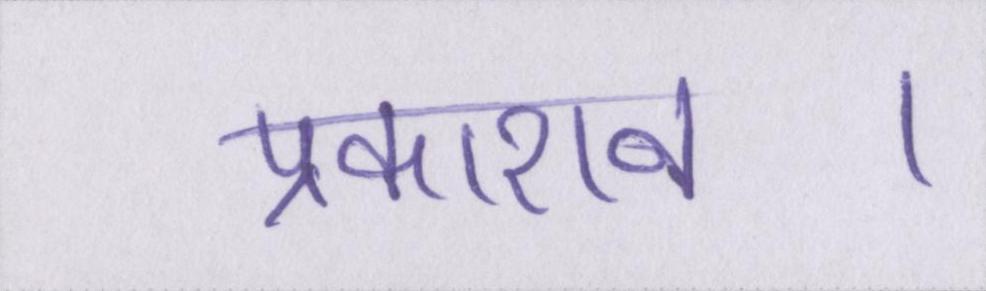 प्रकाशन ।